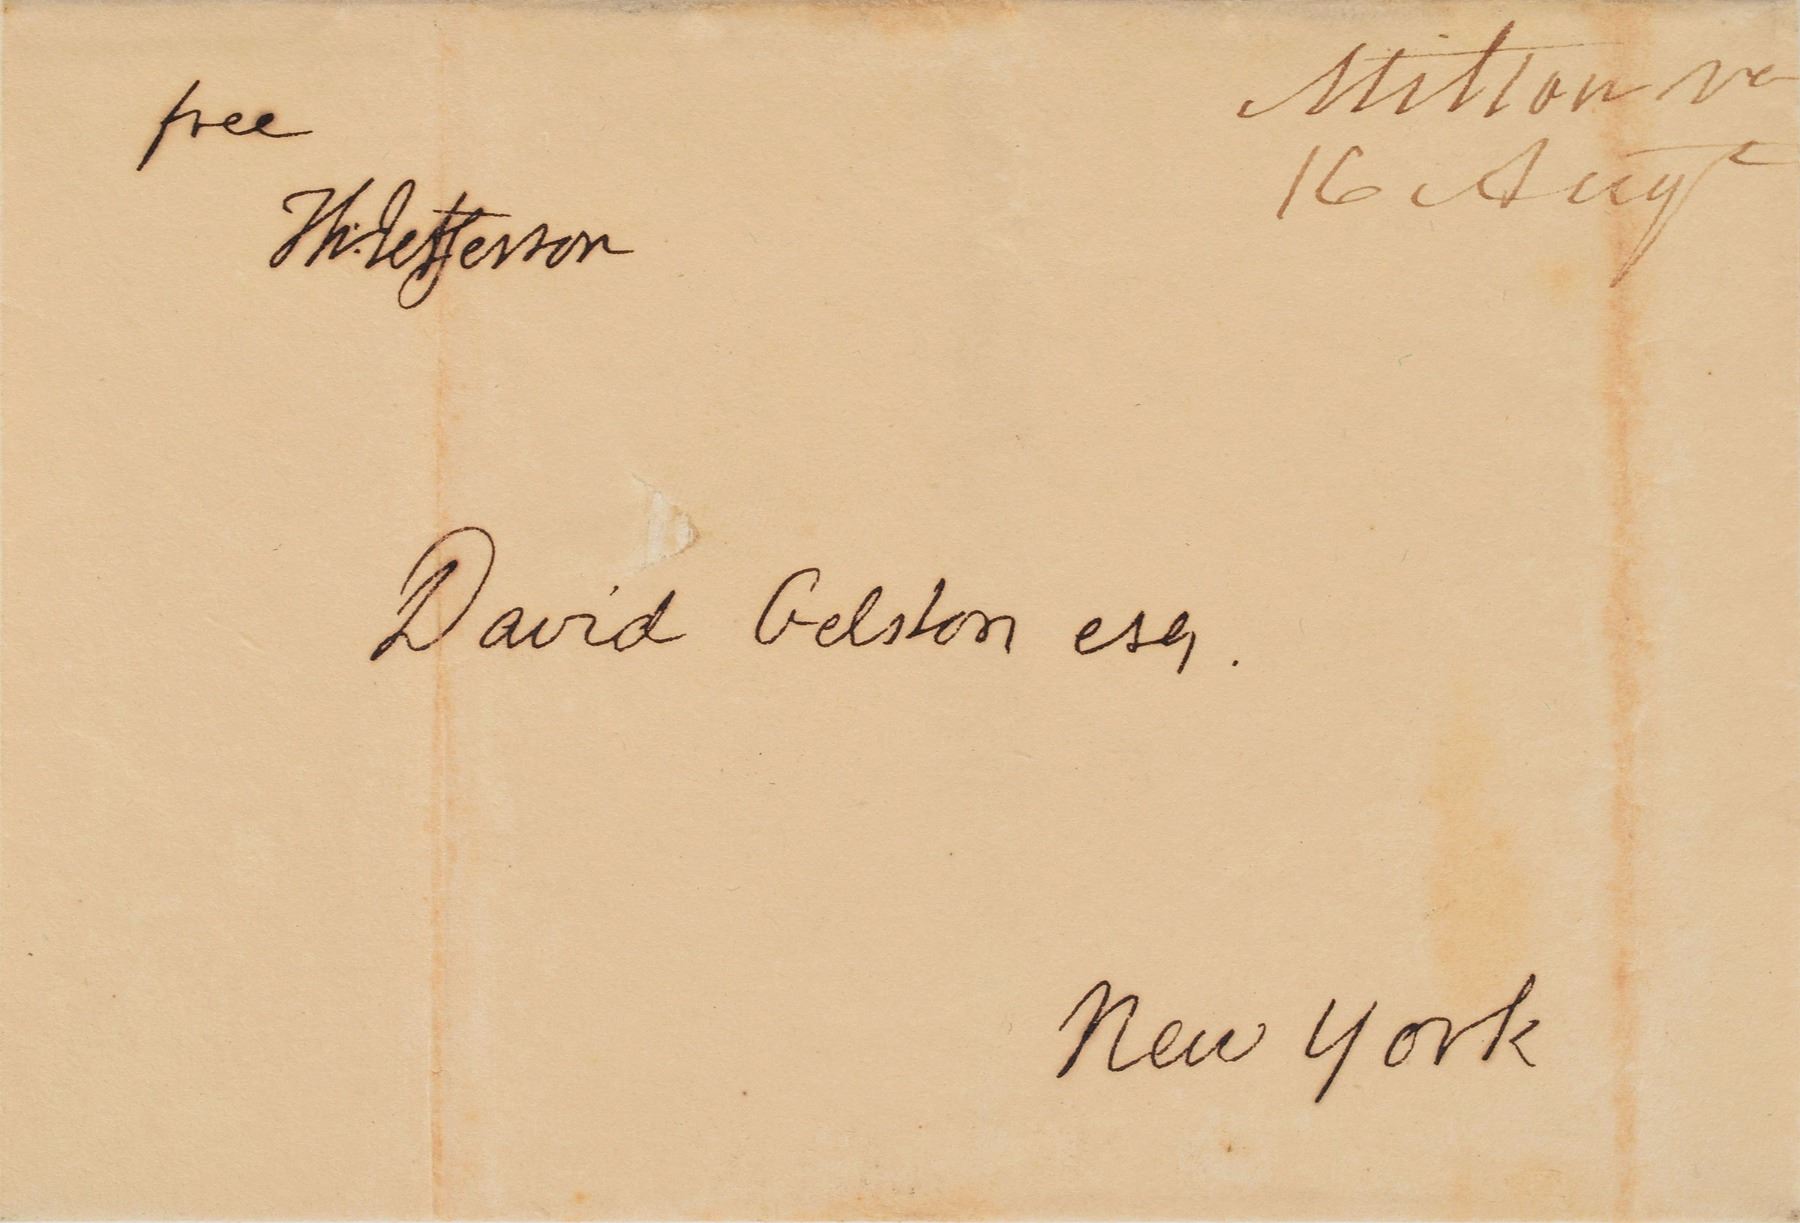 free
Th: Jefferson
Milton va
16 Augt
David Gelston esq.
New York